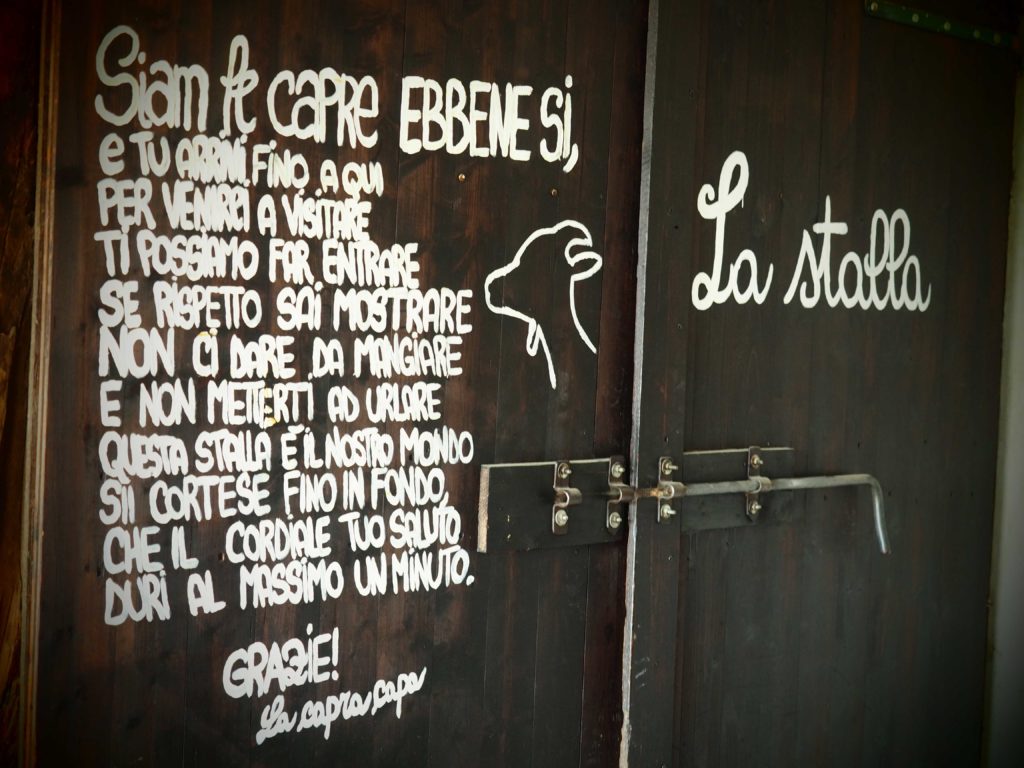 Siam le capre EBBENE Si,
e TU ARRIVI FINO A QUI
PER VENIRCI A VISITARE
TI POSSIAMO FAR ENTRARE
SE RISPETTO SAI MOSTRARE
NON CI DARE DA MANGIARE
E NON METTERTI AD URLARE
QUESTA STALLA È IL NOSTRO MONDO
SII CORTESE FINO IN FONDO,
CHE IL CORDIALE TUO SALUTO
DURI AL MASSIMO UN MINUTO.
GRAZIE!
La capra capa
La stalla